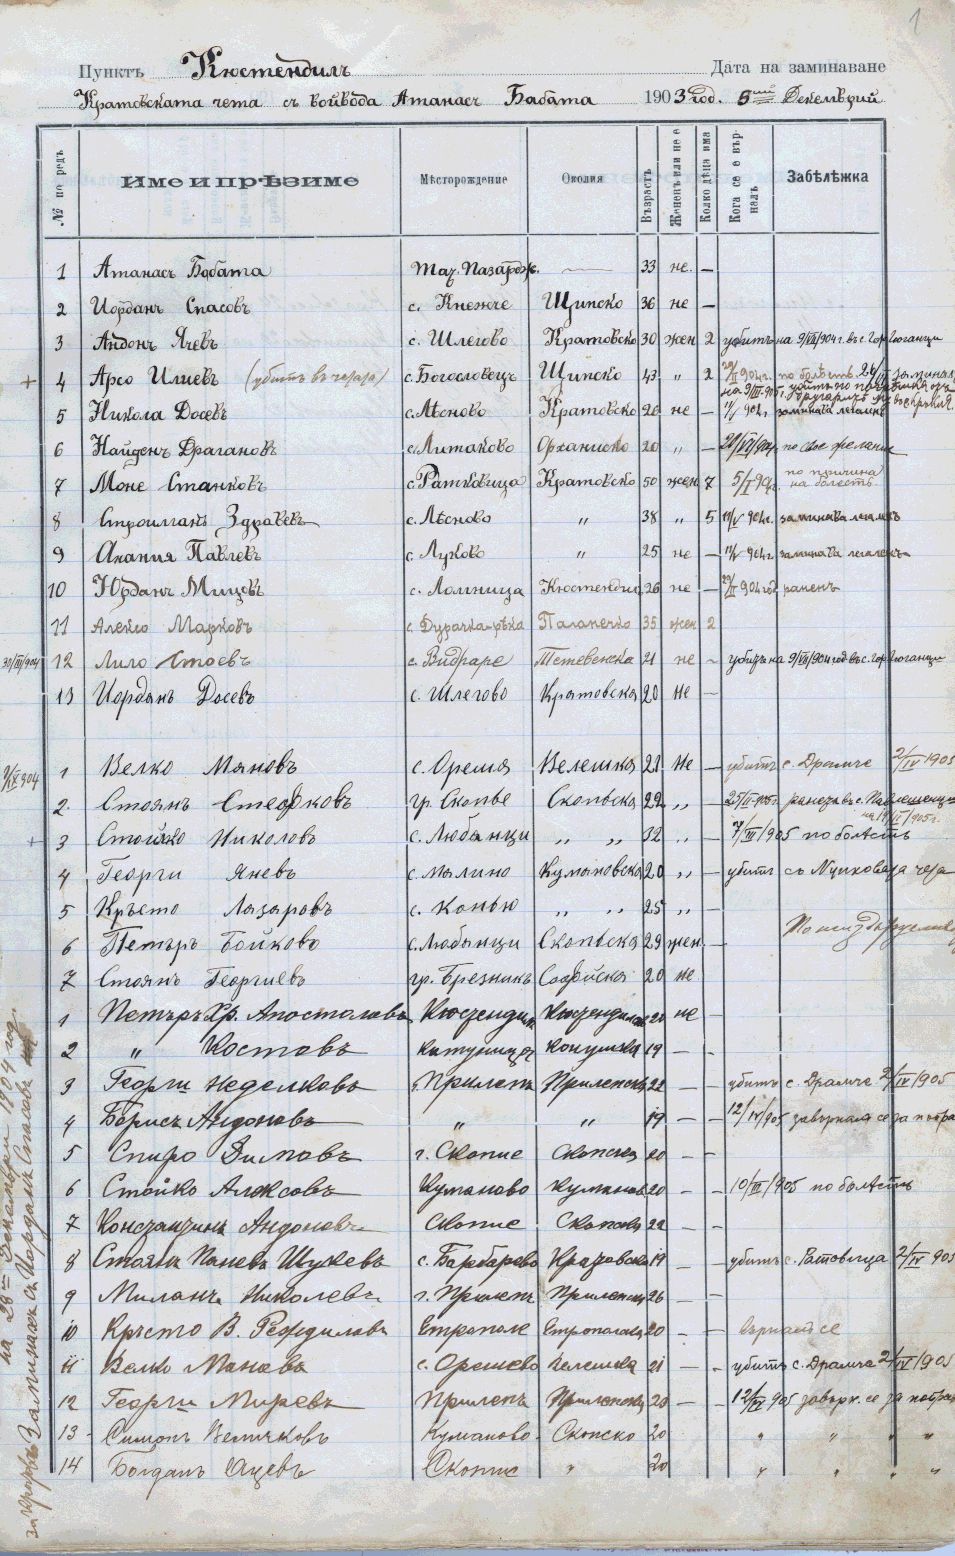 1
Пунктъ Кюстендилъ Дата на заминаване
Кратовската чета съ войвода Атанасъ Бабата 1903 год. 5ий Декемврий
№ по редъ Име и прѣзиме Мѣсторождение Околия Възрастъ Жененъ или не е Колко дѣца има Кога се е върналъ Забѣлѣжка
1 Атанасъ Бабата Тат. Пазардж. — 33 не. —
2 Иорданъ Спасовъ с. Кнежче Щипско 36 не —
3 Андонъ Ячевъ с. Шлегово Кратовско 30 жен 2 убитъ на 9/VII/904 г. въ с. Гор.
+ 4 Арсо Илиевъ (убитъ в чета) с. Богословецъ Щипско 43 „ 2 904 г. по болѣстъ
5 Никола Досевъ с. Лѣсново Кратовско 26 не — 904 г. заминава легаленъ
6 Найденъ Драгановъ с. Литаково Орханийско 20 „ — по свое желание
7 Моне Станковъ с. Ратковица Кратовско 50 жен 7 5/I 904 г. по причина на болѣсть
8 Строилманъ Здравевъ с. Лѣсново „ 38 „ 5 904 г. заминава легаленъ
9 Анания Павлевъ с. Луково „ 25 не — 904 г. заминава легаленъ
10 Юрданъ Мицовъ с. Ломница Кюстендил. 26 не — 904 год раненъ
11 Алексо Марковъ с. Дурачка-рѣка Паланечко 35 жен 2
30/III/904 12 Лило Стоевъ с. Видраре Тетевенска 21 не – убитъ на 9/VII/904 год въ с. Гор.
13 Иорданъ Досевъ с. Шлегово Кратовска 20 не —
904 1 Велко Мановъ с. Ореша Велешка 21 Не — убитъ с. Драмче 2/IV 1905
2. Стоянъ Стефковъ гр. Скопье Скопьска 22 „ — 905 г. раненъ въ с.
+ 3 Стойко Николовъ с. Любанци „ „ 32 „ — 7/III/905 по болѣсть
4 Георги Яневъ с. Малино Кумановска 20 „ — убитъ съ чета
5 Кръсто Лазаровъ с. Конью „ „ 25 „ —
6 Петъръ Бойково с. Любанци Скопьска 29 жен —
7 Стоянъ Георгиевъ гр. Брезникъ Софийска 20 не
1 Петъръ Хр. Апостоловъ Кюстендил Кюстендилск 20 не —
2 „ Костовъ Катуница 19 — —
3 Георги Неделковъ Прилепъ Прилепска 22 — — убитъ с. Драмче 2/IV 1905
4 Борисъ Андоновъ „ „ 19 — — 12/IV/905 завърналъ се за
5 Спиро Димовъ г. Скопие Скопска 20 — —
6 Стойко Алексовъ Куманово Куманов. 20 — — 10/III/905 по болѣсть
7 Константинъ Андоновъ Скопие Скопска 22 — —
8 Стоянъ Паневъ Шукевъ с. Барбарево Кратовско 19 — — убитъ с. Ратовица 2/IV 905
9 Миланъ Николевъ г. Прилепъ Прилепска 26 — —
10 Кръсто В. Етрополе Етрополска 20 — — върналъ се
11 Велко Мановъ с. Орешево Велешка 21 — — убитъ с. Драмче 2/IV 1905
12 Георги Миревъ Прилепъ Прилепска 20 — — 12/IV 905 завърн. се за
13 Симонъ Величковъ Куманово Скопско 20 „ „ „ „
14 Богданъ Ацевъ Скопие „ 20 „ „ „ „
на 28 Декемврий 1904 год.
за Кратовъ Заминаха съ Иорданъ Спасовъ